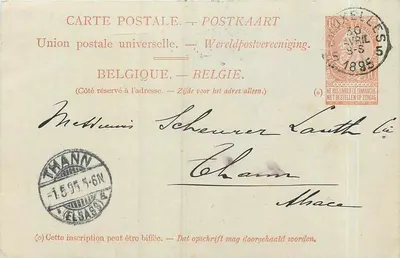 CARTE POSTALE. – POSTKAART
Union postale universelle. – Wereldpostvereeniging.
BELGIQUE. – BELGIE.
(Côté réservé à l'adresse. – Zijde voor het adres alleen.)
(a)
BRUXELLES 5
30 AVRIL
8-S
1895
NE PAS LIVRER LE DIMANCHE
NIET BESTELLEN OP ZONDAG
Messieurs Scheurer Lauth Cie
Thann
Alsace
THANN
-1.5.95.5-6N
(ELSASS)
(a) Cette inscription peut être biffée. – Dat opschrift mag doorgehaald worden.